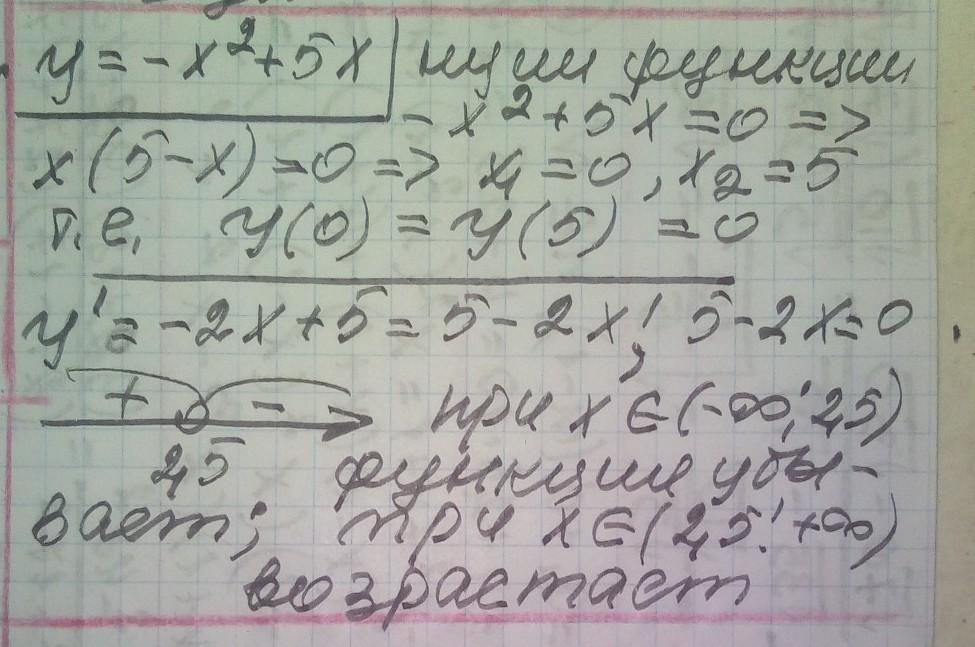 y = -x² + 5x нули функции
-x² + 5x = 0 =>
x(5-x) = 0 => x₁ = 0, x₂ = 5
т.е. y(0) = y(5) = 0
y' = -2x + 5 = 5 - 2x; 5 - 2x = 0
+ - при x ∈ (-∞; 2,5)
2,5 функция убы-
вает; при x ∈ (2,5; +∞)
возрастает